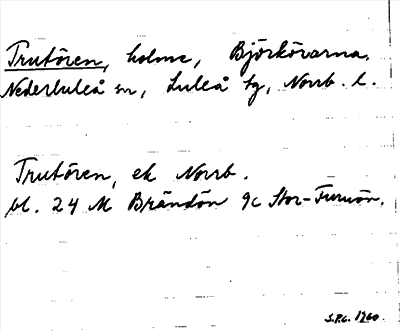 Trutören, holme, Björkövarna.
Nederluleå sn, Luleå tg, Norrb. l.
Trutören, ek Norrb.
bl. 24 M Brändön 9c Stor-Furuön.
S.P.L. 1960.